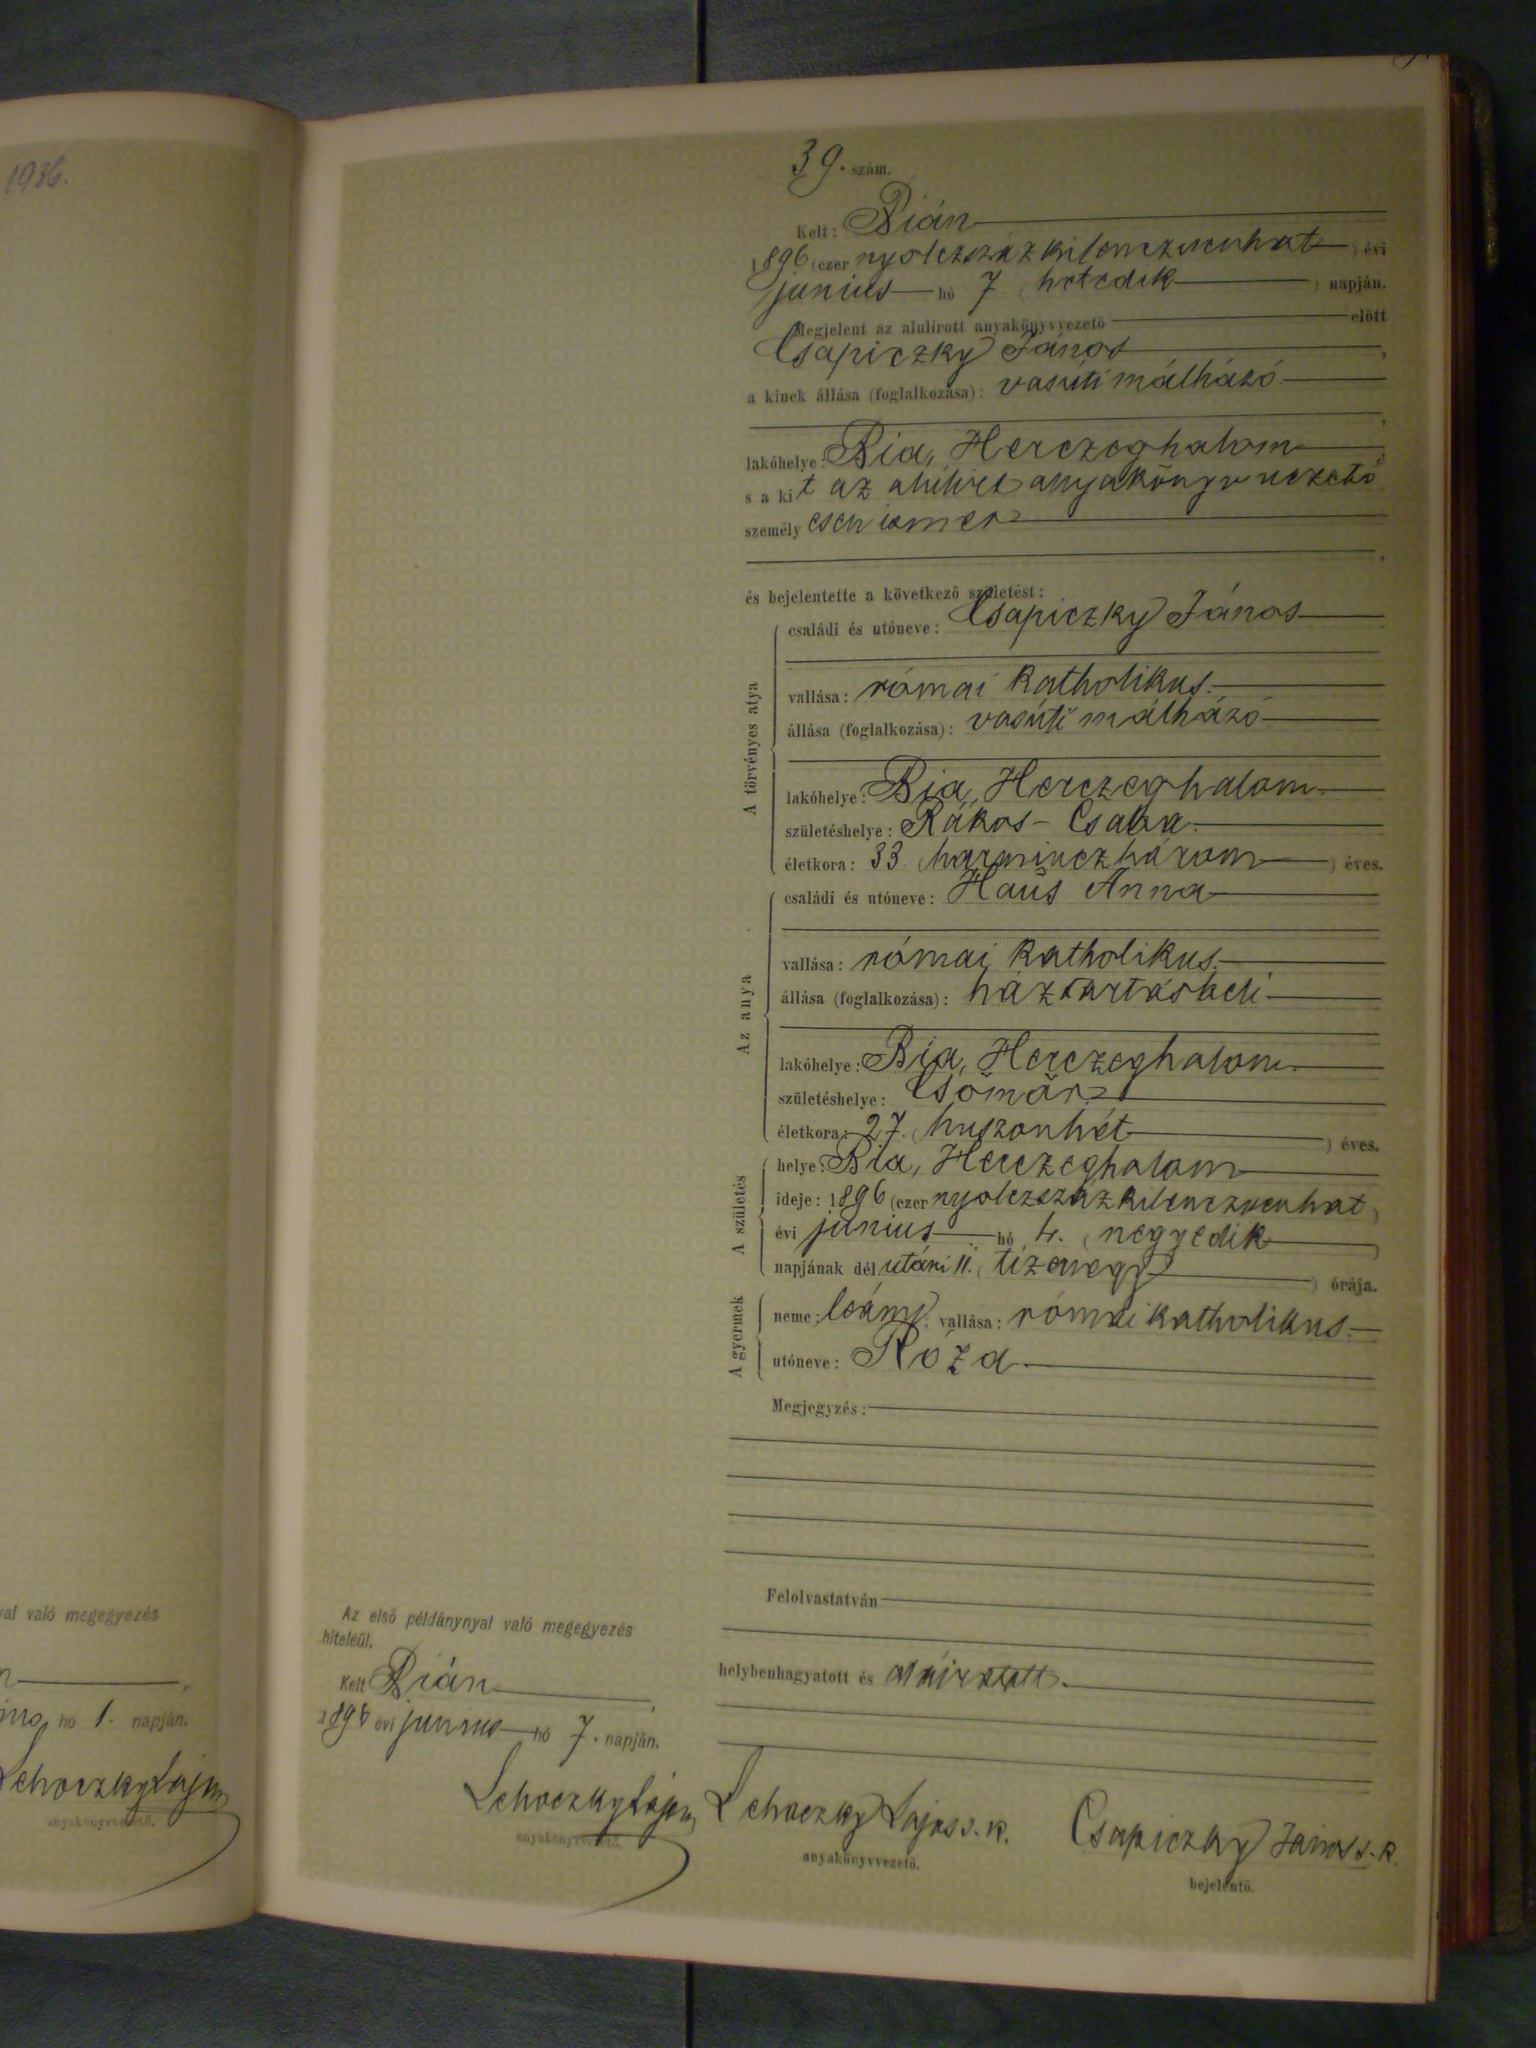 1936.
39. szám.
Kelt: Bián
1896 (ezer nyolczszáz kilenczvenhat) évi
junius hó 7 (hetedik) napján.
Megjelent az alulirott anyakönyvvezető előtt
Csapiczky János,
a kinek állása (foglalkozása): vasúti málházó
,
lakóhelye: Bia, Herczeghalom,
s a kit az alulirt anyakönyvvezető
személyesen ismer
,
és bejelentette a következő születést:
A törvényes atya
családi és utóneve: Csapiczky János
vallása: római katholikus.
állása (foglalkozása): vasúti málházó
lakóhelye: Bia, Herczeghalom.
születéshelye: Rákos-Csaba.
életkora: 33 (harminczhárom) éves.
Az anya
családi és utóneve: Haŭs Anna
vallása: római katholikus.
állása (foglalkozása): háztartásbeli
lakóhelye: Bia, Herczeghalom.
születéshelye: Csömör
életkora: 27. (huszonhét) éves.
A születés
helye: Bia, Herczeghalom
ideje: 1896 (ezer nyolczszáz kilenczvenhat)
évi junius hó 4. (negyedik)
napjának dél utáni 11. (tizenegy) órája.
A gyermek
neme: leány, vallása: római katholikus.
utóneve: Róza.
Megjegyzés:
Felolvastatván
helybenhagyatott és aláiratott.
Lehoczky Lajos s. k.
anyakönyvvezető.
Csapiczky János s. k.
bejelentő.
Az első példánynyal való megegyezés
hiteléül.
Kelt Bián,
1896 évi junius hó 7. napján.
Lehoczky Lajos
anyakönyvvezető.
való megegyezés
hó 1. napján.
Lehoczky Lajos
anyakönyvvezető.